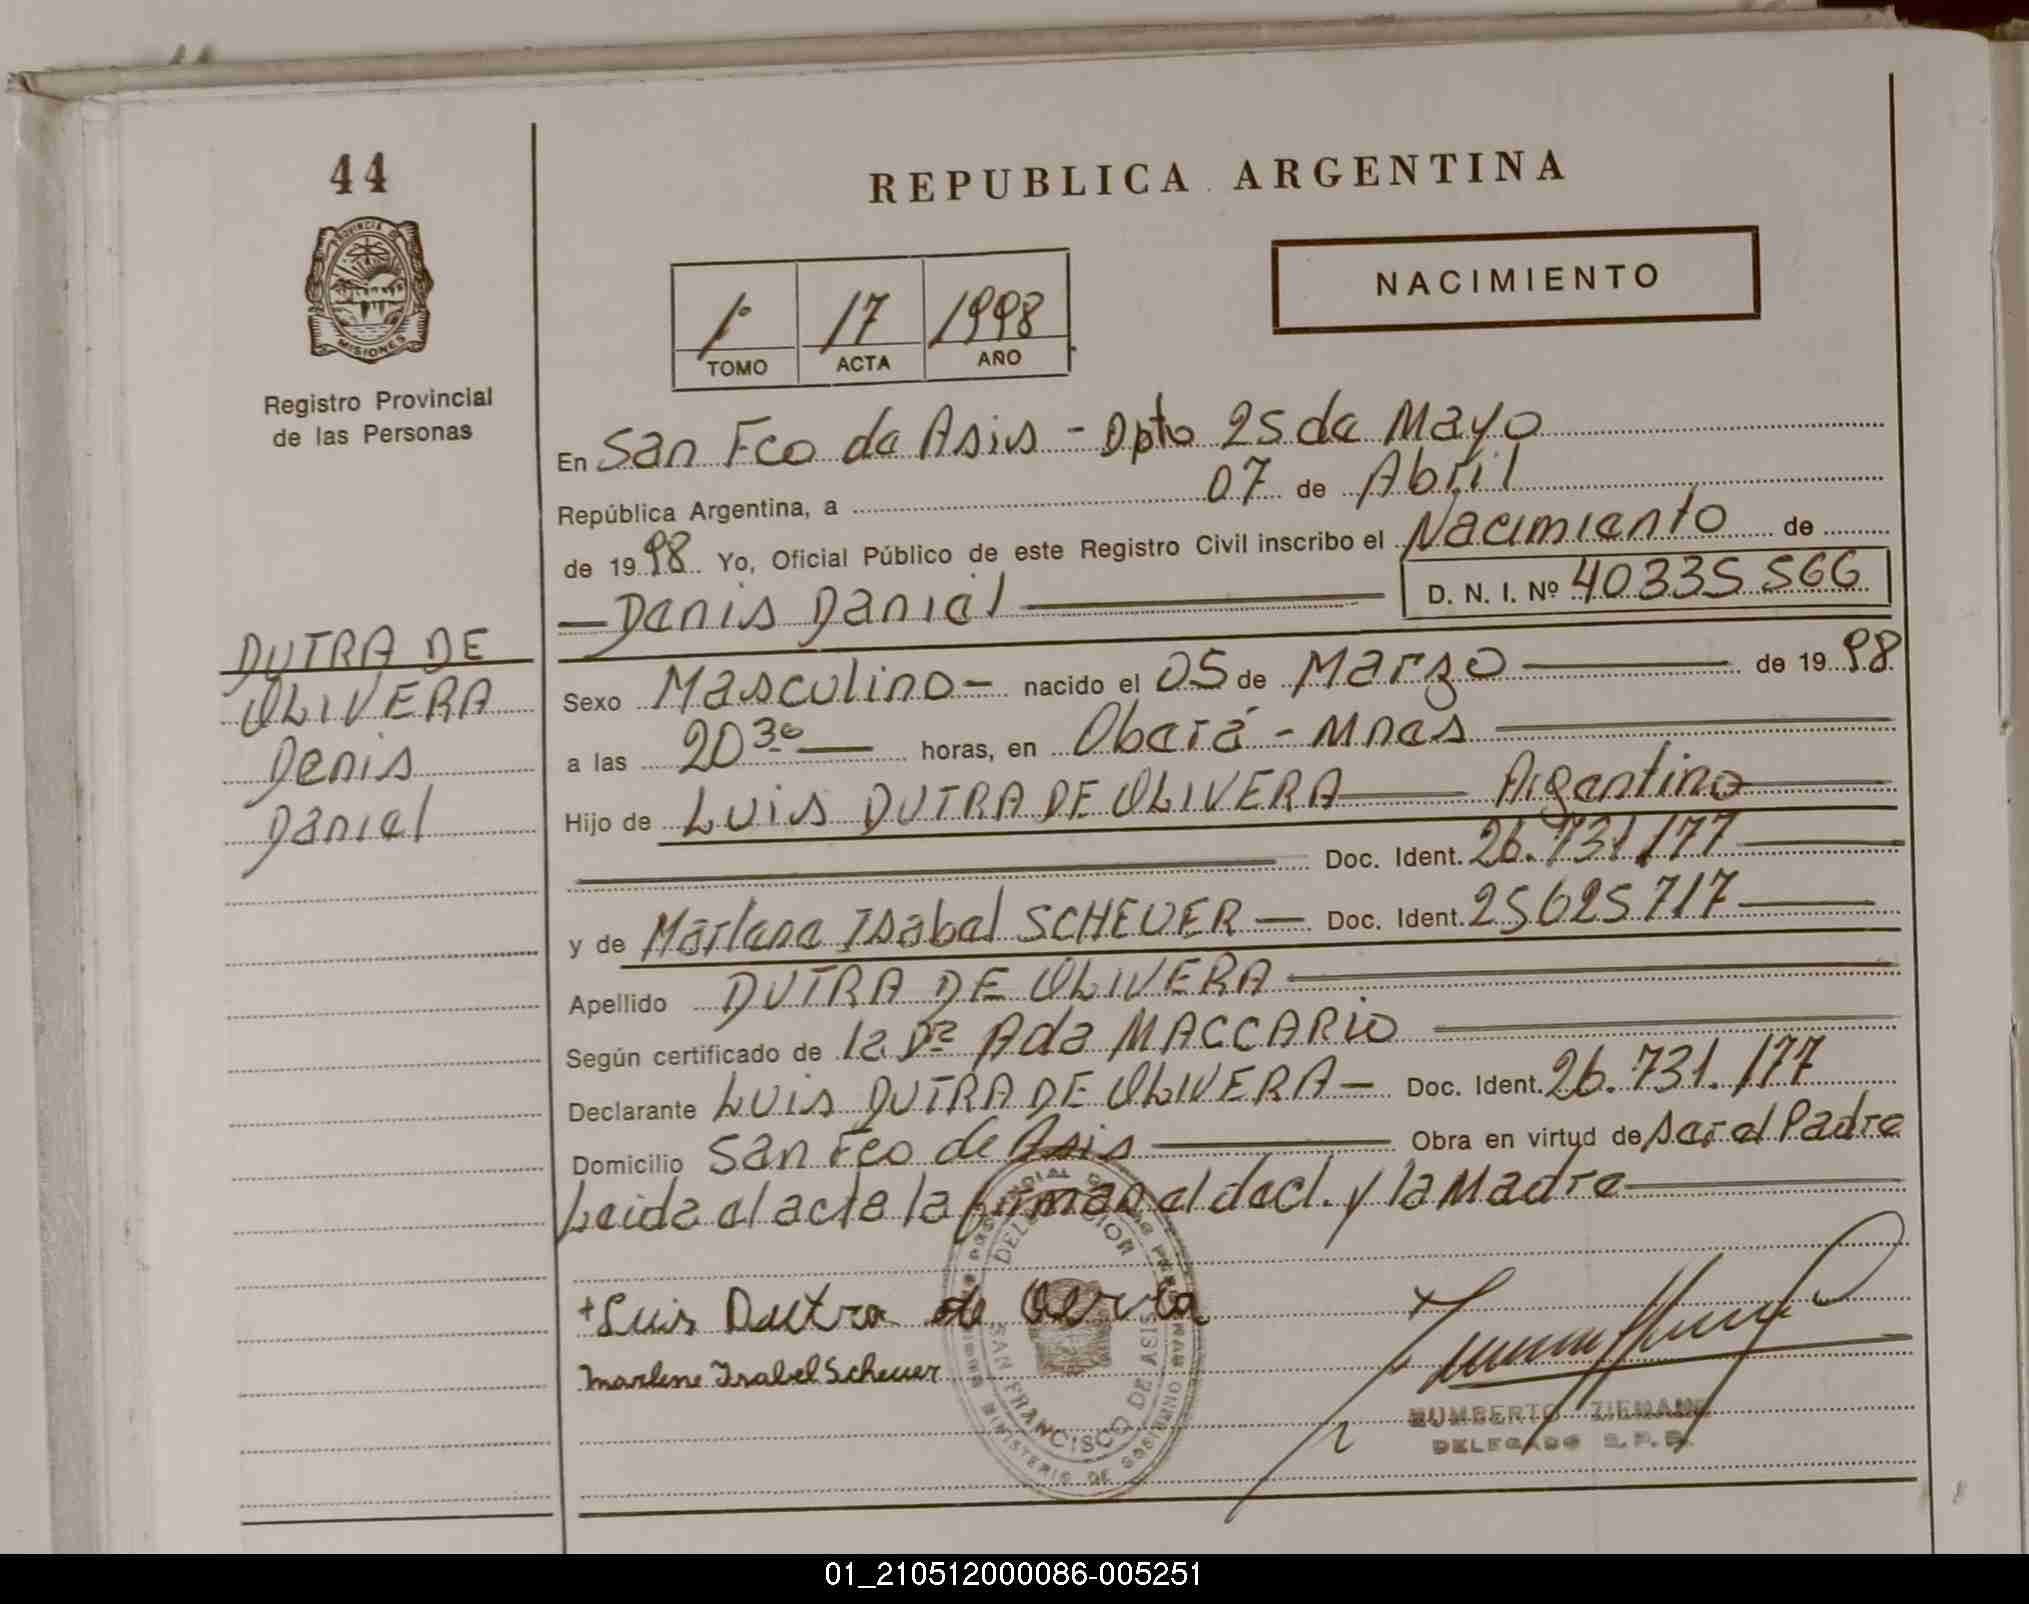 44
REPUBLICA ARGENTINA
PROVINCIA DE
MISIONES
Registro Provincial
de las Personas
1º 17 1998
TOMO ACTA AÑO
NACIMIENTO
En San Fco de Asis - Dpto 25 de Mayo
República Argentina, a 07 de Abril
de 1998 Yo, Oficial Público de este Registro Civil inscribo el Nacimiento de
Denis Daniel D. N. I. Nº 40335566
DUTRA DE
OLIVERA
Denis
Daniel
Sexo Masculino - nacido el 05 de Marzo de 1998
a las 20 30 horas, en Oberá - Mnes
Hijo de Luis DUTRA DE OLIVERA Argentino
Doc. Ident. 26.731.177
y de Marlene Isabel SCHEUER Doc. Ident. 25625717
Apellido DUTRA DE OLIVERA
Según certificado de la Dra Ada MACCARIO
Declarante Luis DUTRA DE OLIVERA Doc. Ident. 26.731.177
Domicilio San Fco de Asis Obra en virtud de ser el Padre
Leida el acta la firman el decl. y la Madre
+Luis Dutra de
Marlene Isabel Scheuer
DELEGACION
SAN FRANCISCO DE ASIS
MINISTERIO DE GOBIERNO
HUMBERTO ZIEMANN
DELEGADO R.P.P.
01_210512000086-005251